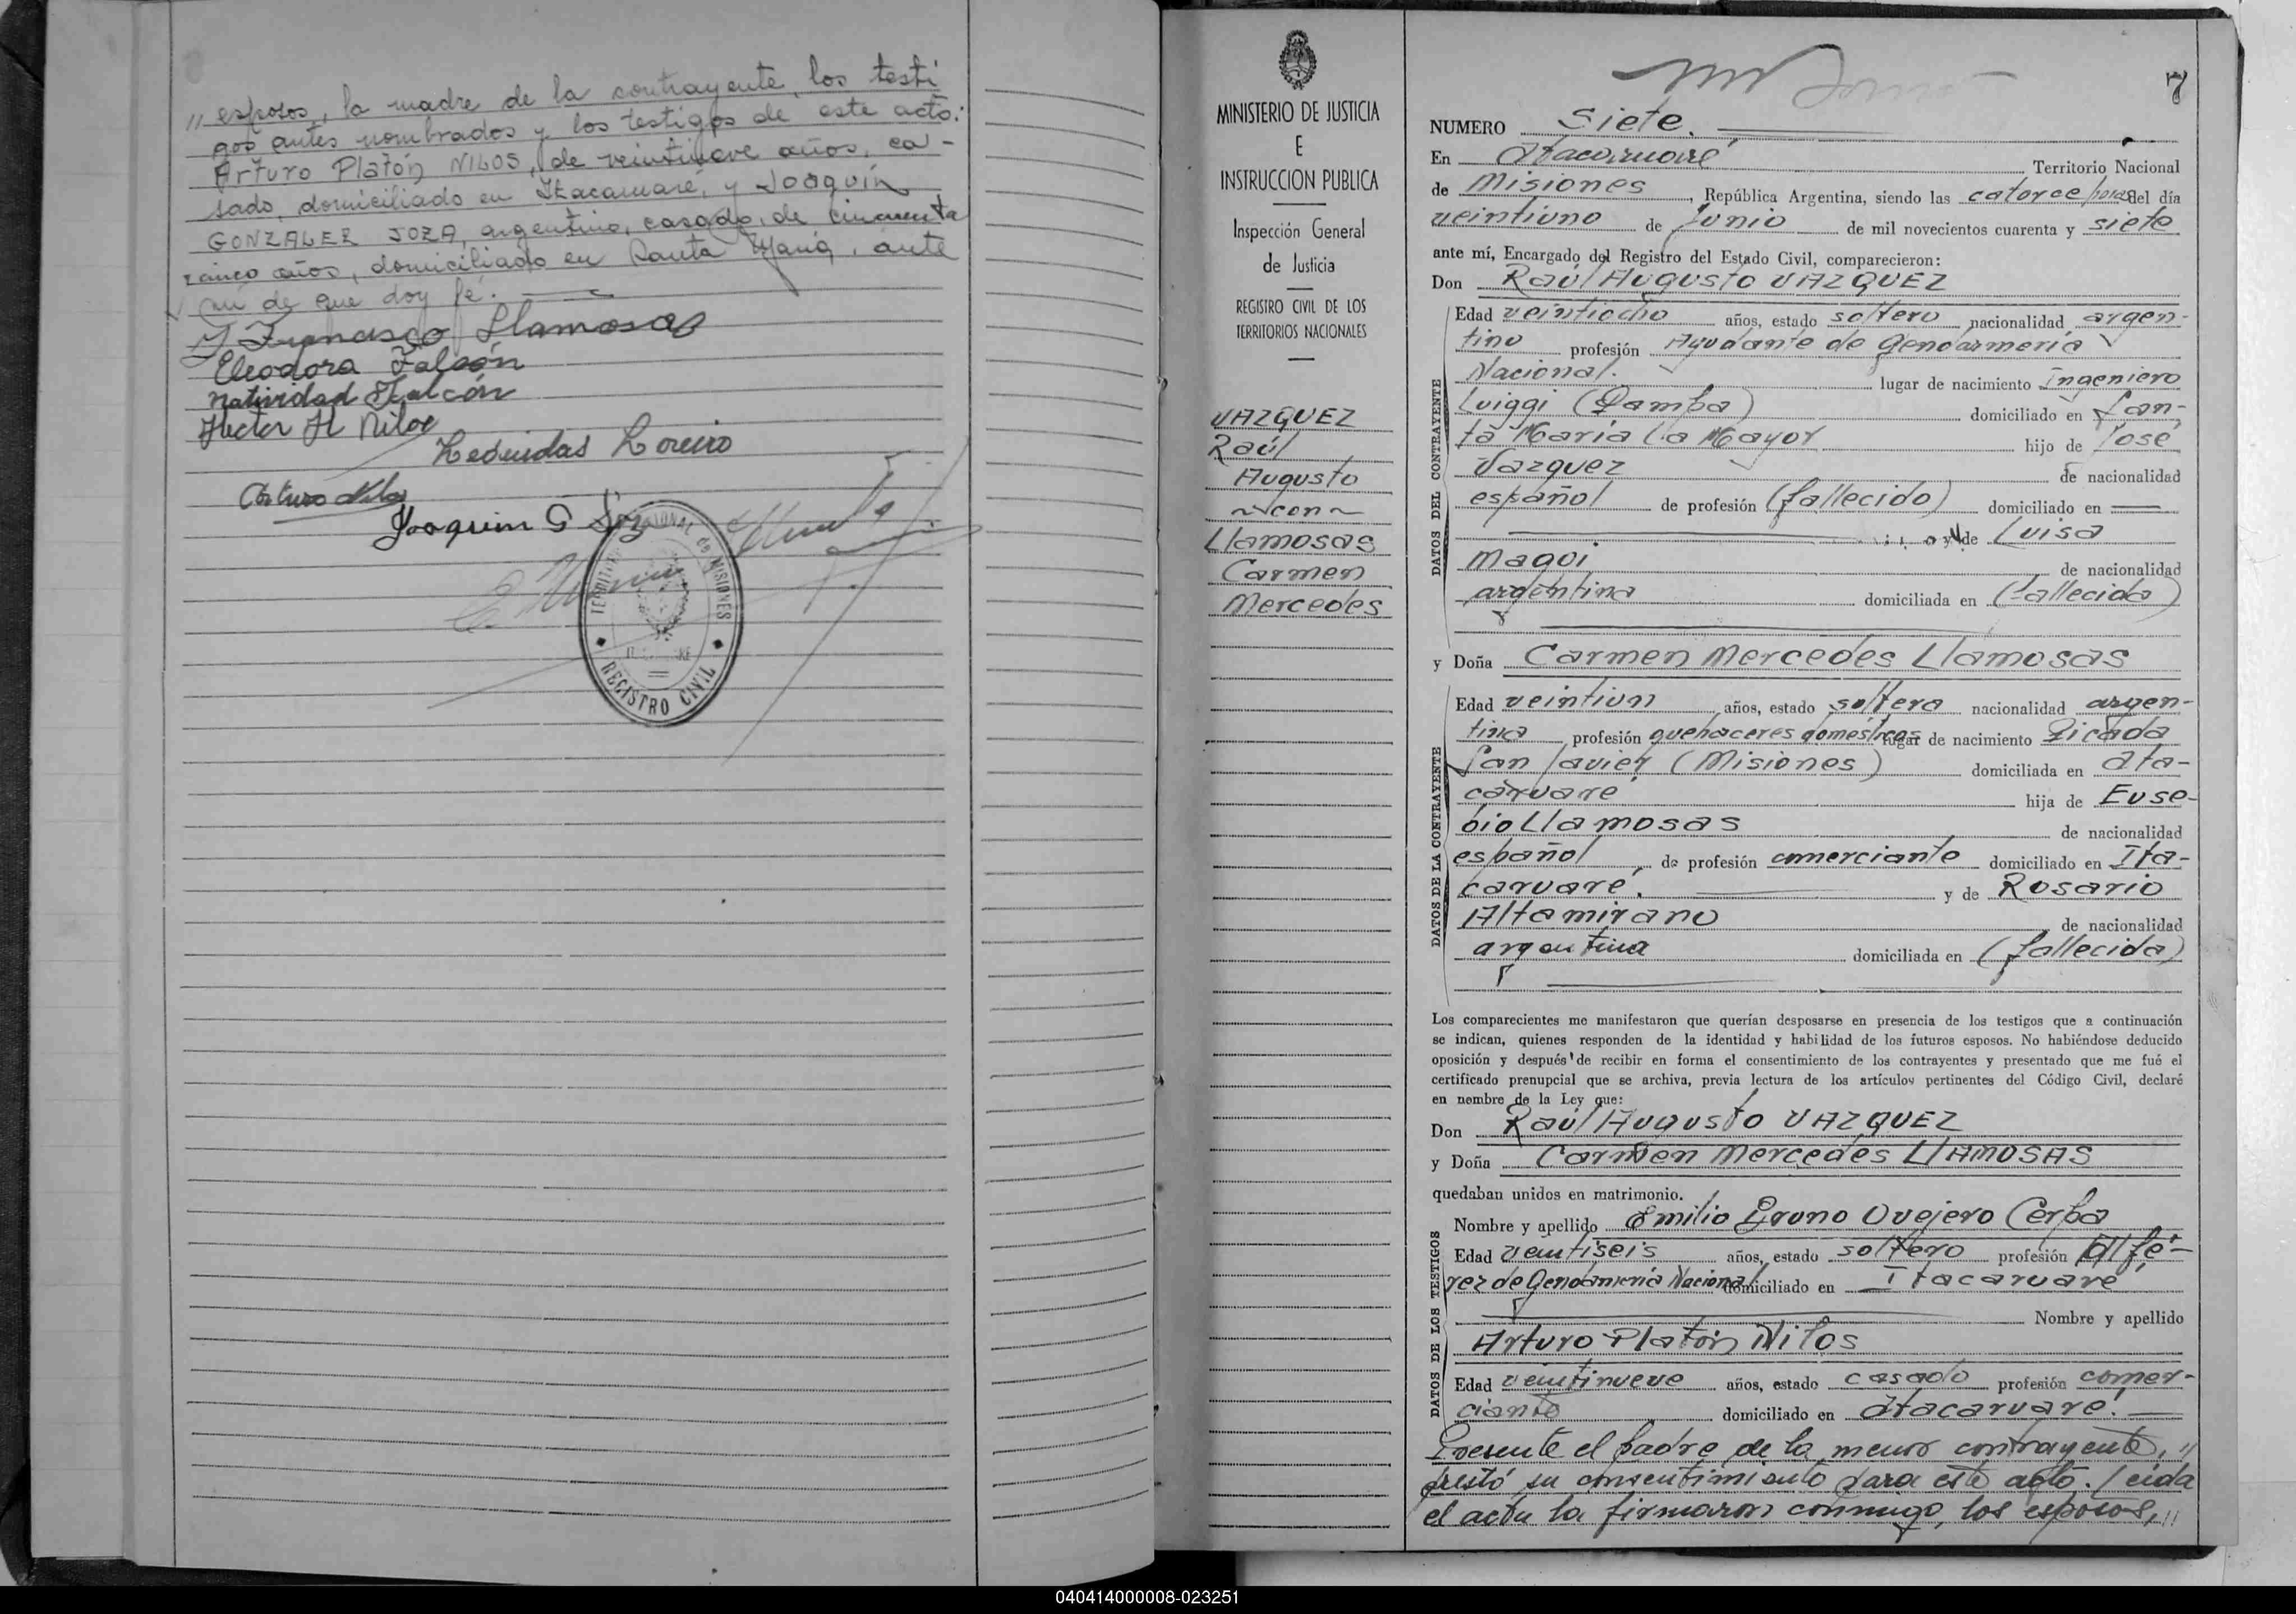 " esposos, la madre de la contrayente, los testi
gos antes nombrados y los testigos de este acto:
Arturo Platón NILOS, de veintinueve años, ca-
sado, domiciliado en Itacaruaré, y Joaquín
GONZALEZ SOZA, argentino, casado, de cincuenta
y cinco años, domiciliado en Santa María, ante
mí de que doy fé.
Francisco Llamosas
Eleodora Falcón
Natividad Falcón
Hector H Nilos
Leonidas Loreiro
Arturo Nilos
Joaquin G Soza
TERRITORIO NACIONAL de MISIONES
REGISTRO CIVIL
MINISTERIO DE JUSTICIA
E
INSTRUCCION PUBLICA
Inspección General
de Justicia
REGISTRO CIVIL DE LOS
TERRITORIOS NACIONALES
VAZQUEZ
Raúl
Augusto
~con~
Llamosas
Carmen
Mercedes
7
NUMERO Siete.
En Itacaruaré Territorio Nacional
de Misiones, República Argentina, siendo las catorce horas del día
veintiuno de Junio de mil novecientos cuarenta y siete
ante mí, Encargado del Registro del Estado Civil, comparecieron:
Don Raúl Augusto VAZQUEZ
DATOS DEL CONTRAYENTE
Edad veintiocho años, estado soltero nacionalidad argen-
tino profesión Ayudante de Gendarmería
Nacional. lugar de nacimiento Ingeniero
Luiggi (Pampa) domiciliado en San-
ta María la Mayor hijo de José
Vazquez de nacionalidad
español de profesión (fallecido) domiciliado en
y de Luisa
Maqui de nacionalidad
argentina domiciliada en (fallecida)
y Doña Carmen Mercedes Llamosas
DATOS DE LA CONTRAYENTE
Edad veintiun años, estado soltera nacionalidad argen-
tina profesión quehaceres domésticos lugar de nacimiento Picada
San Javier (Misiones) domiciliada en Ita-
caruaré hija de Euse-
bio Llamosas de nacionalidad
español de profesión comerciante domiciliado en Ita-
caruaré. y de Rosario
Altamirano de nacionalidad
argentina domiciliada en (fallecida)
Los comparecientes me manifestaron que querían desposarse en presencia de los testigos que a continuación
se indican, quienes responden de la identidad y habilidad de los futuros esposos. No habiéndose deducido
oposición y después de recibir en forma el consentimiento de los contrayentes y presentado que me fué el
certificado prenupcial que se archiva, previa lectura de los artículos pertinentes del Código Civil, declaré
en nombre de la Ley que:
Don Raúl Augusto VAZQUEZ
y Doña Carmen Mercedes LLAMOSAS
quedaban unidos en matrimonio.
DATOS DE LOS TESTIGOS
Nombre y apellido Emilio Bruno Ovejero Cerpa
Edad veintiseis años, estado soltero profesión Alfé-
rez de Gendarmería Nacional domiciliado en Itacaruaré
Nombre y apellido
Arturo Platón Nilos
Edad veintinueve años, estado casado profesión comer-
ciante domiciliado en Itacaruaré.
Presente el padre de la menor contrayente, "
prestó su consentimiento para este acto. Leída
el acta la firmaron conmigo, los esposos, "
040414000008-023251